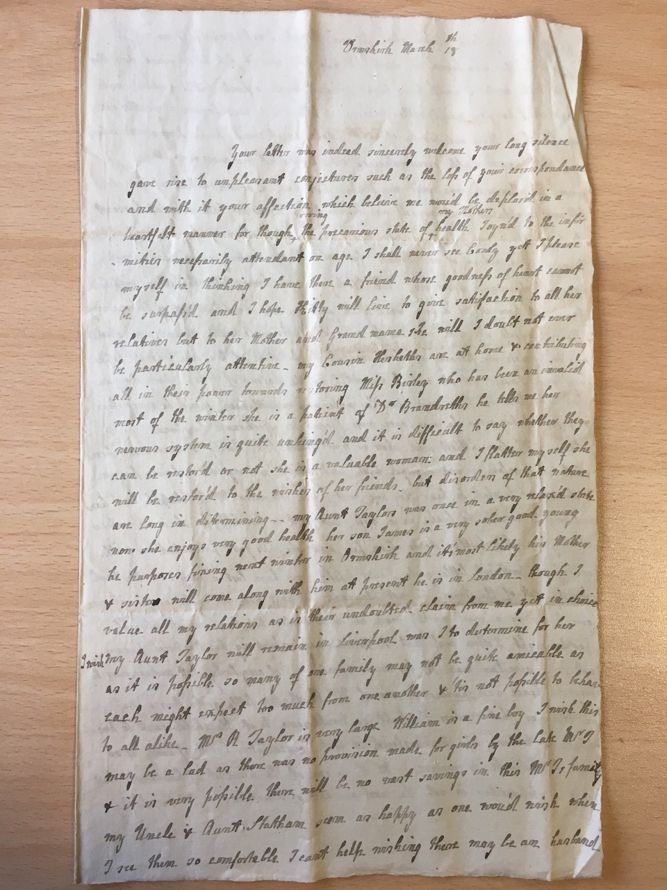 Ormskirk March 18th
Your letter was indeed sincerely welcome your long silence
gave rise to unpleasant conjectures such as the loss of your correspondance
and with it your affection which believe me wou'd be deplor'd in a
my Mothers
heartfelt manner for though the precarious state of health Joyn'd to the infir
-mities necessarily attendant on age I shall never see Cordy yet I please
myself in thinking I have there a friend whose goodness of heart cannot
be surpass'd and I hope Skitty will live to give satisfaction to all her
relatives but to her Mother and Grand mama she will I doubt not ever
be particularly attentive - my Cousin are at home & contributing
all in their power towards restoring Miss Birley who has been an invalid
most of the winter she is a patient of Dr Brandreths he tells me her
nervous system is quite unhing'd and it is difficult to say whether they
can be restor'd or not she is a valuable woman and I flatter myself she
will be restor'd to the wishes of her friends but disorders of that nature
are long in determining -- my Aunt Taylor was once in a very relaxd state
now she enjoys very good health her son James is a very sober good young
he purposes fixing next winter in Ormskirk and it's most likely his Mother
& sister will come along with him at present he is in london - though I
value all my relations as is their undoubted claim from me yet in choice
I wish my Aunt Taylor will remain in Liverpool was I to determine for her
as it is possible so many of one family may not be quite amicable as
each might expect too much from one another & 'tis not possible to behave
to all alike - Mrs R Taylor is very large William is a fine boy I wish this
may be a lad as there was no provision made for girls by the late Mr T
& it is very possible there will be no vast savings in this Mr Ts family
my Uncle & Aunt Statham seem as happy as one wou'd wish when
I see them so comfortable I cant help wishing there may be an husband